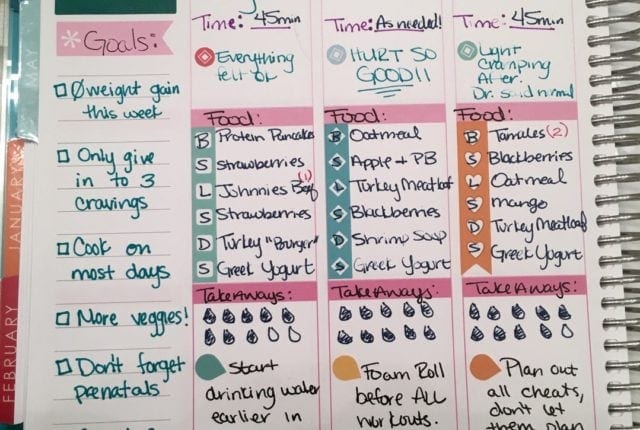 MAY
JANUARY
FEBRUARY
* Goals:
Ø weight gain
this week
Only give
in to 3
cravings
Cook on
most days
More veggies!
Don't forget
prenatals
Time: 45min
Everything
felt ok
Food:
B Protein Pancakes
S Strawberries
(1)
L Johnnies Beef
S Strawberries
D Turkey "Burger"
S Greek Yogurt
TakeAways:
Start
drinking water
earlier in
Time: As needed!
HURT SO
GOOD!!
Food:
B Oatmeal
S Apple + PB
L Turkey Meatloaf
S Blackberries
D Shrimp Soup
S Greek Yogurt
TakeAways:
Foam Roll
before ALL
workouts.
Time: 45min
Light
Cramping
After.
Dr. said normal
Food:
B Tamales (2)
S Blackberries
L Oatmeal
S mango
D Turkey Meatloaf
S Greek Yogurt
TakeAways:
Plan out
all cheats,
don't let
them plan